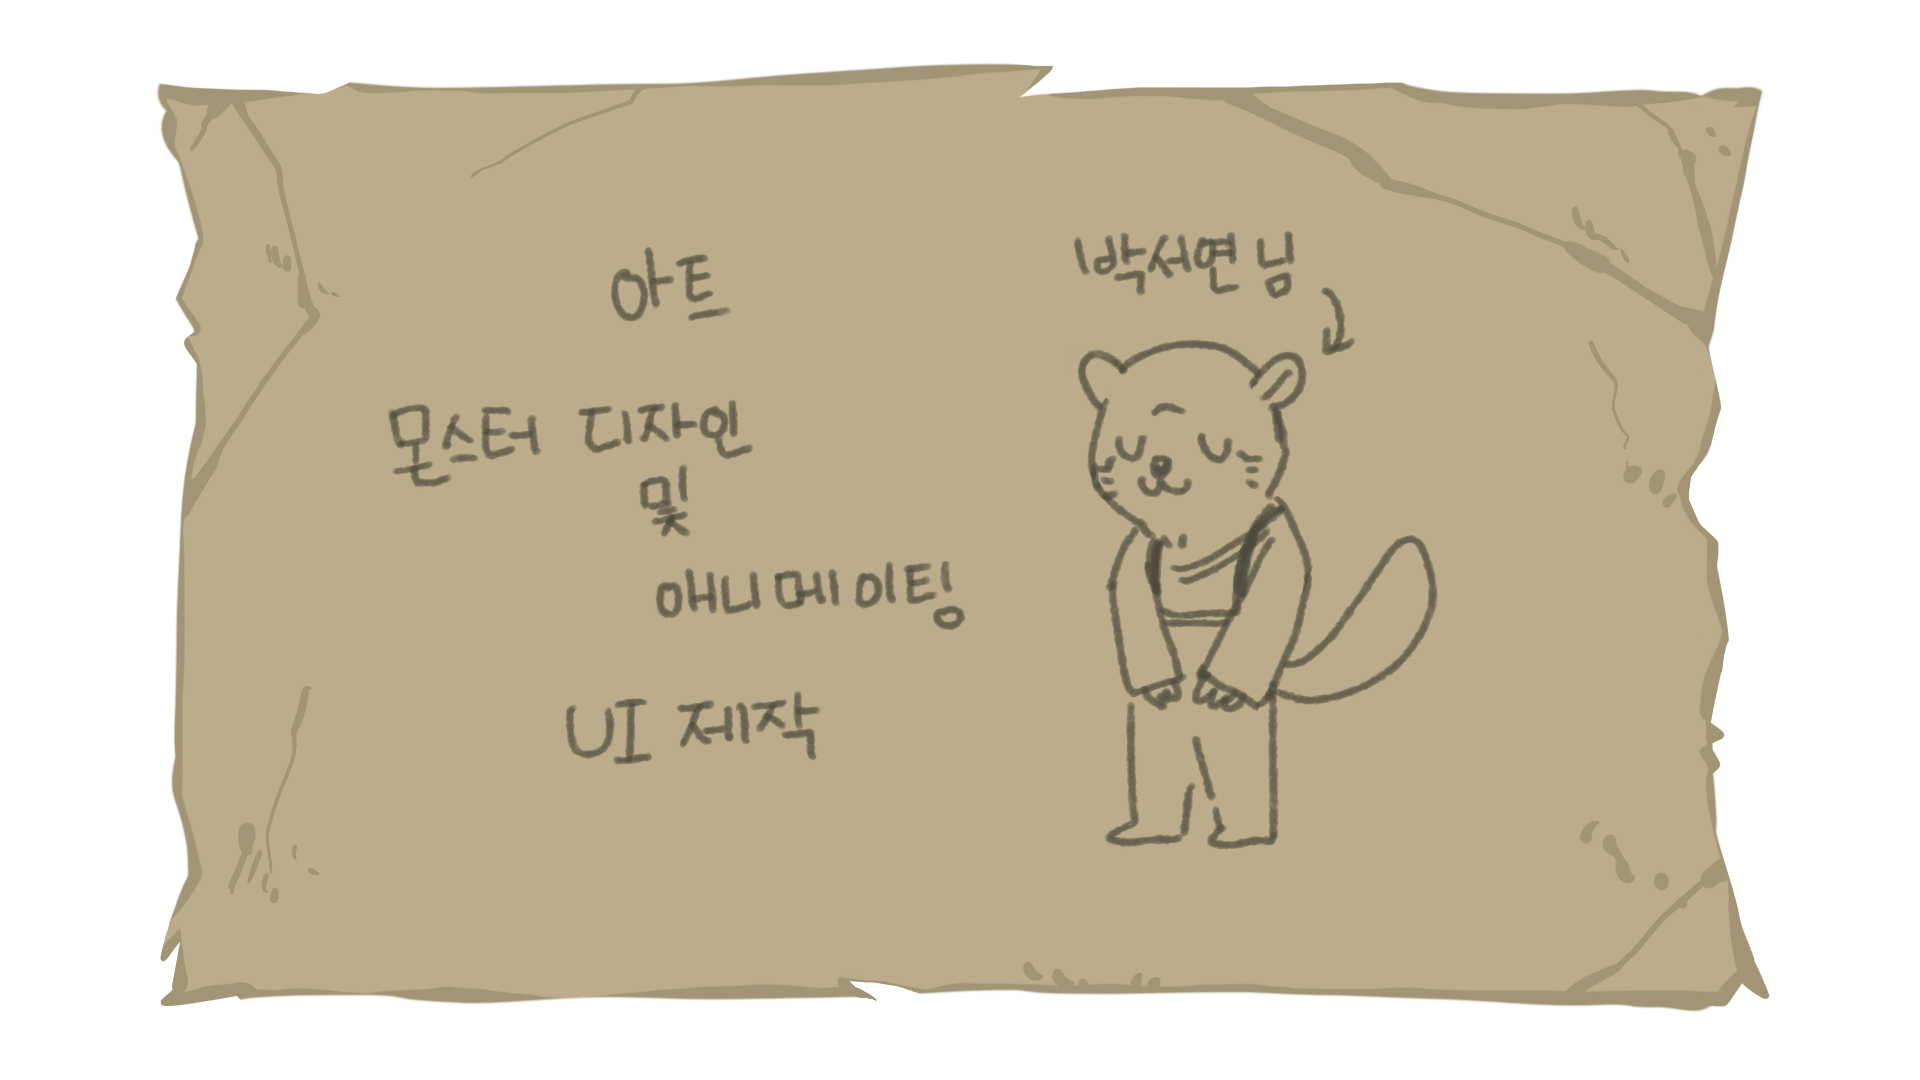 아트
몬스터 디자인
및
애니메이팅
UI 제작
박서연님